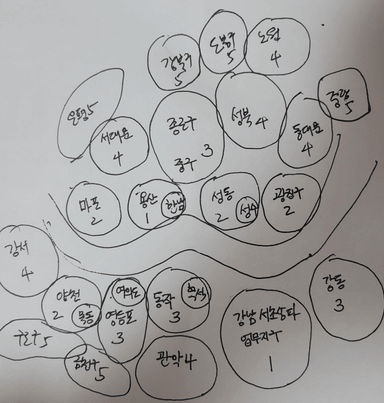 강북구
5
도봉구
5
노원
4
은평5
서대문
4
종로구
중구 3
성북 4
동대문
4
중랑
5
마포
2
용산
1
한남
성동
2
성수
광진구
2
강서
4
양천
2
목동
여의도
영등포
3
동작
3
흑석
강남 서초 송파
업무지구
1
강동
3
구로구 5
금천구
5
관악 4